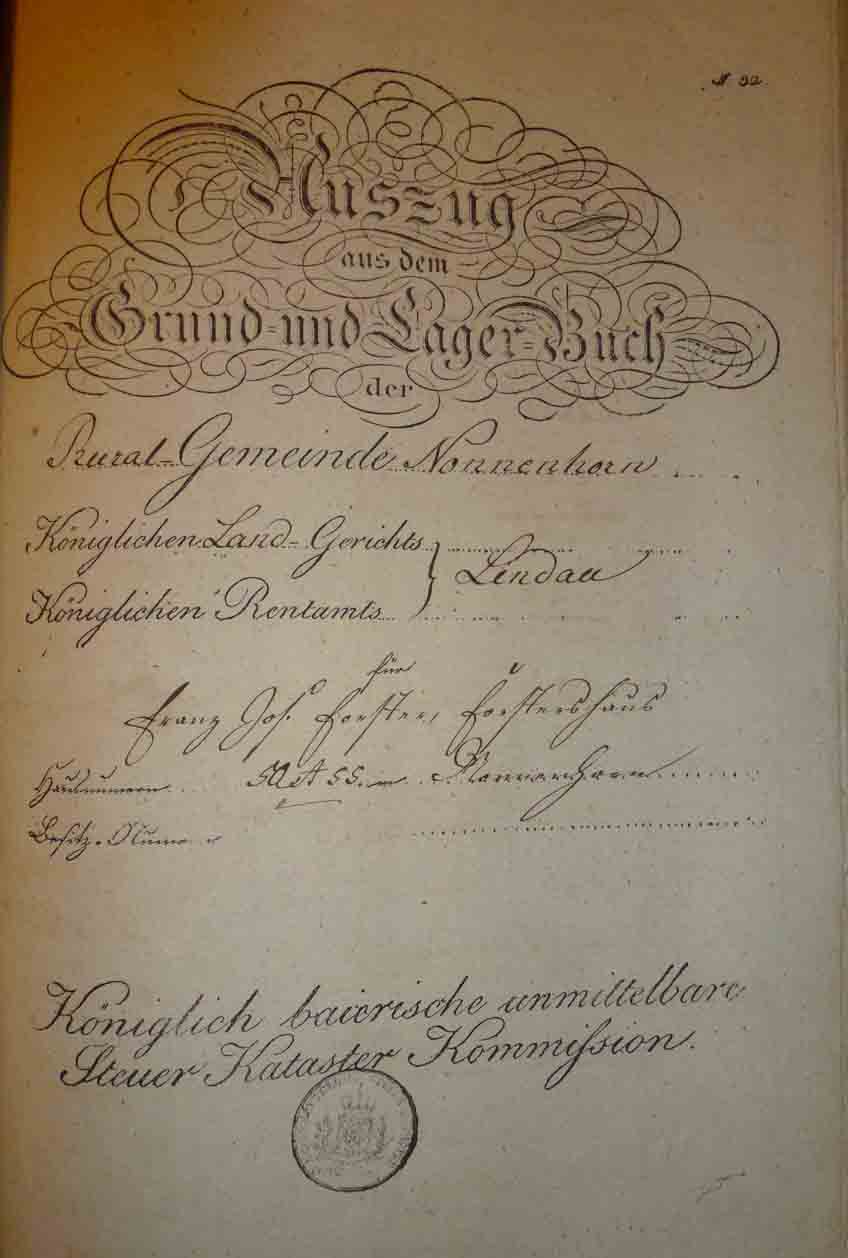 N 32
Auszug
aus dem
Grund- und Lager-Buch
der
Rural-Gemeinde Nonnenhorn
Königlichen Land-Gerichts
Lindau
Königlichen Rentamts
für
Franz Jos. Forster, Forstershaus
Hausnumern in Nonnenhorn
Besitz-Numer
Königlich baierische unmittelbare
Steuer Kataster Kommission.